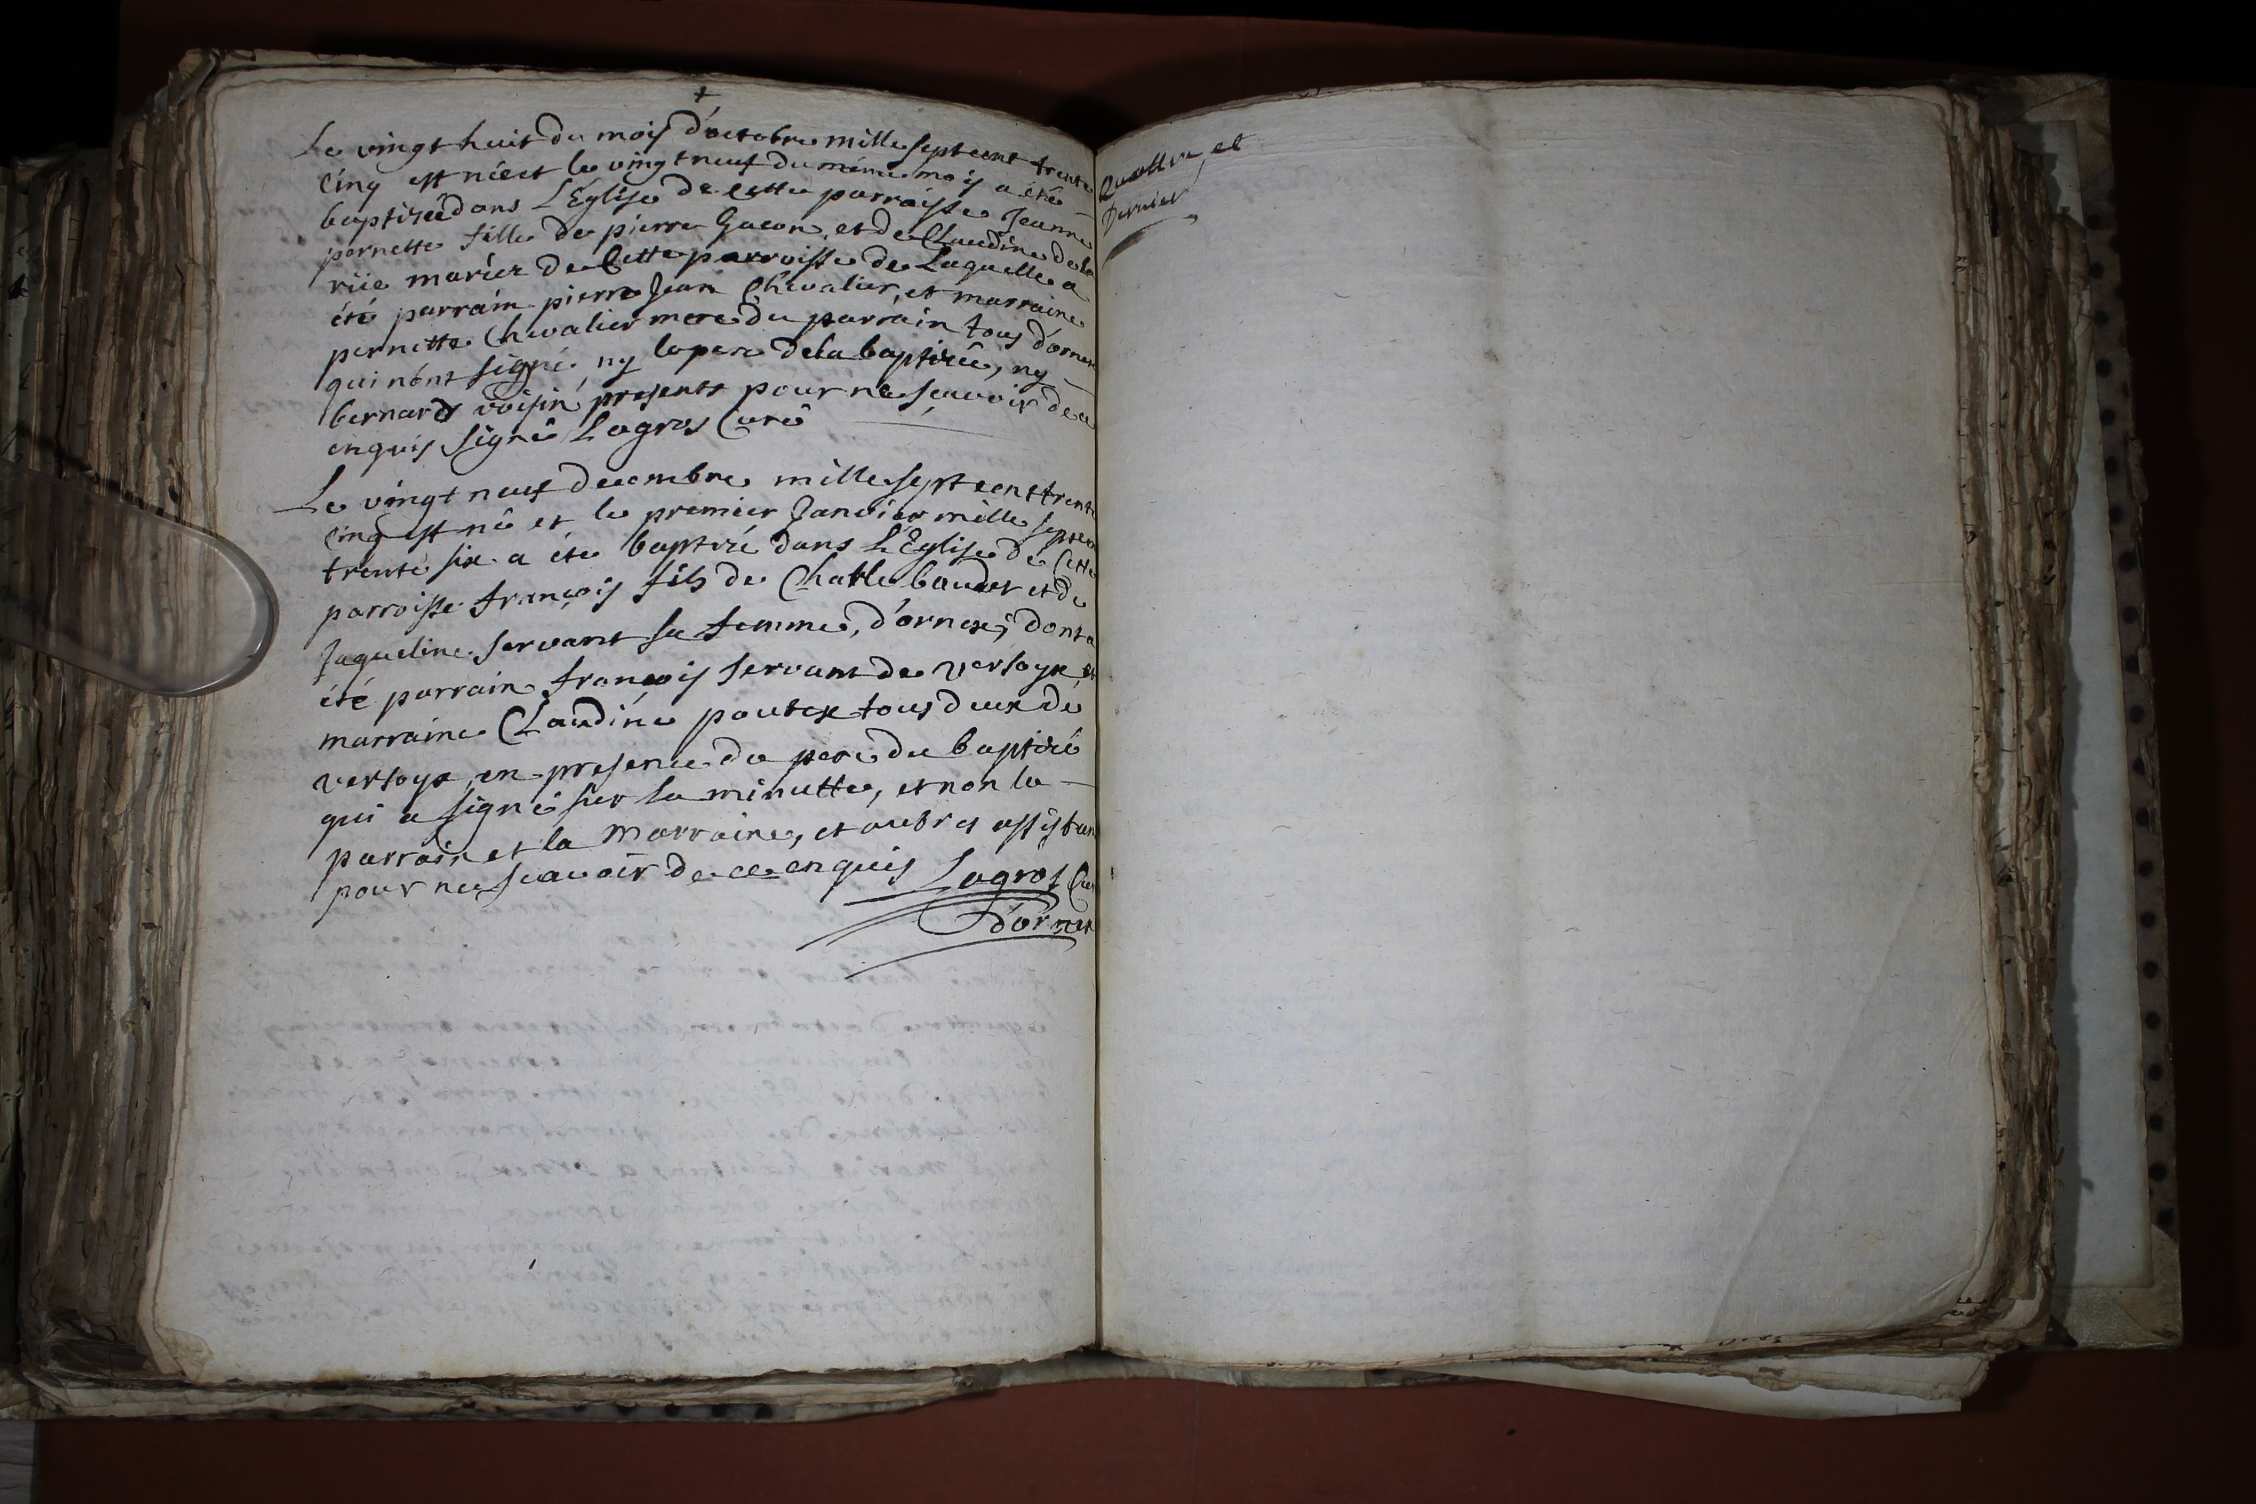 Le vingt huit du mois d'octobre mille sept cent trente
cinq est née et le vingt neuf du même mois a été
baptisée dans L'Eglise de cette parroisse Jeanne
pernette fille de pierre Gacon, et de Claudine de la
rüe mariez de Cette parroisse de Laquelle a
été parrain pierre Jean Chevalier, et marraine
pernette Chevalier mere du parrain tous d'ornex
qui n'ont signé ny le pere de la baptisée, ny
bernard voisin presents pour ne scavoir de ce
enquis signé Lagros Curé
Le vingt neuf decembre mille sept cent trente
cinq est né et le premier Janvier mille sept cent
trente six a été baptisé dans L'Eglise de Cette
parroisse françois fils de Charle baudet et de
Jaqueline servant sa femme, d'ornex, dont a
été parrain françois servant de versoye, et
marraine Claudine poutex tous deux de
versoye, en presence du pere du baptisé
qui a signé sur la minutte, et non le
parrain et la marraine, et autres assistan
pour ne scavoir de ce enquis Lagros Cur
d'ornex
Quattre, et
dernier